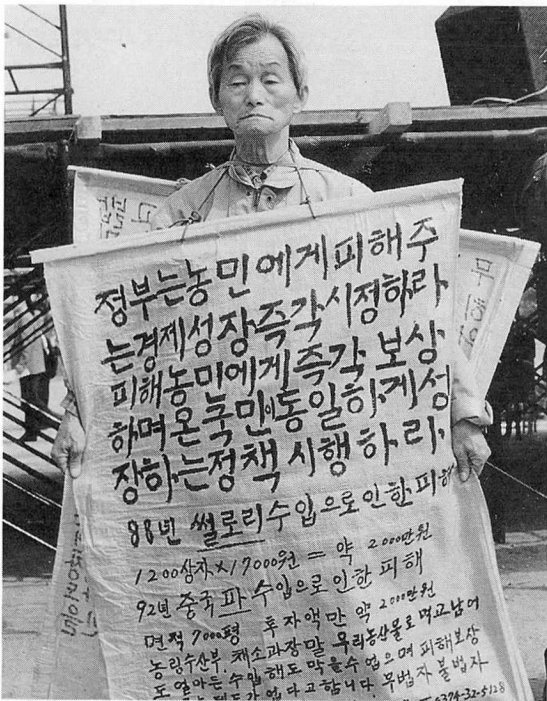 정부는농민에게피해주
는경제성장즉각시정하라
피해농미에게즉각보상
하며온국민이동일하게성
장하는정책시행하라,
88년 썰로리수입으로인한피해
1200상자×17000원 = 약 2000만원
92년 중국파수입으로인한 피해
면적 7000평 투자액만 약 2000만원
농림수산부 채소과장말 우리농산물로 먹고남어
도 얼아든 수입해도 막을수 업으며 피해보상
업다고합니다. 무법자 불법자
0374-32-5128